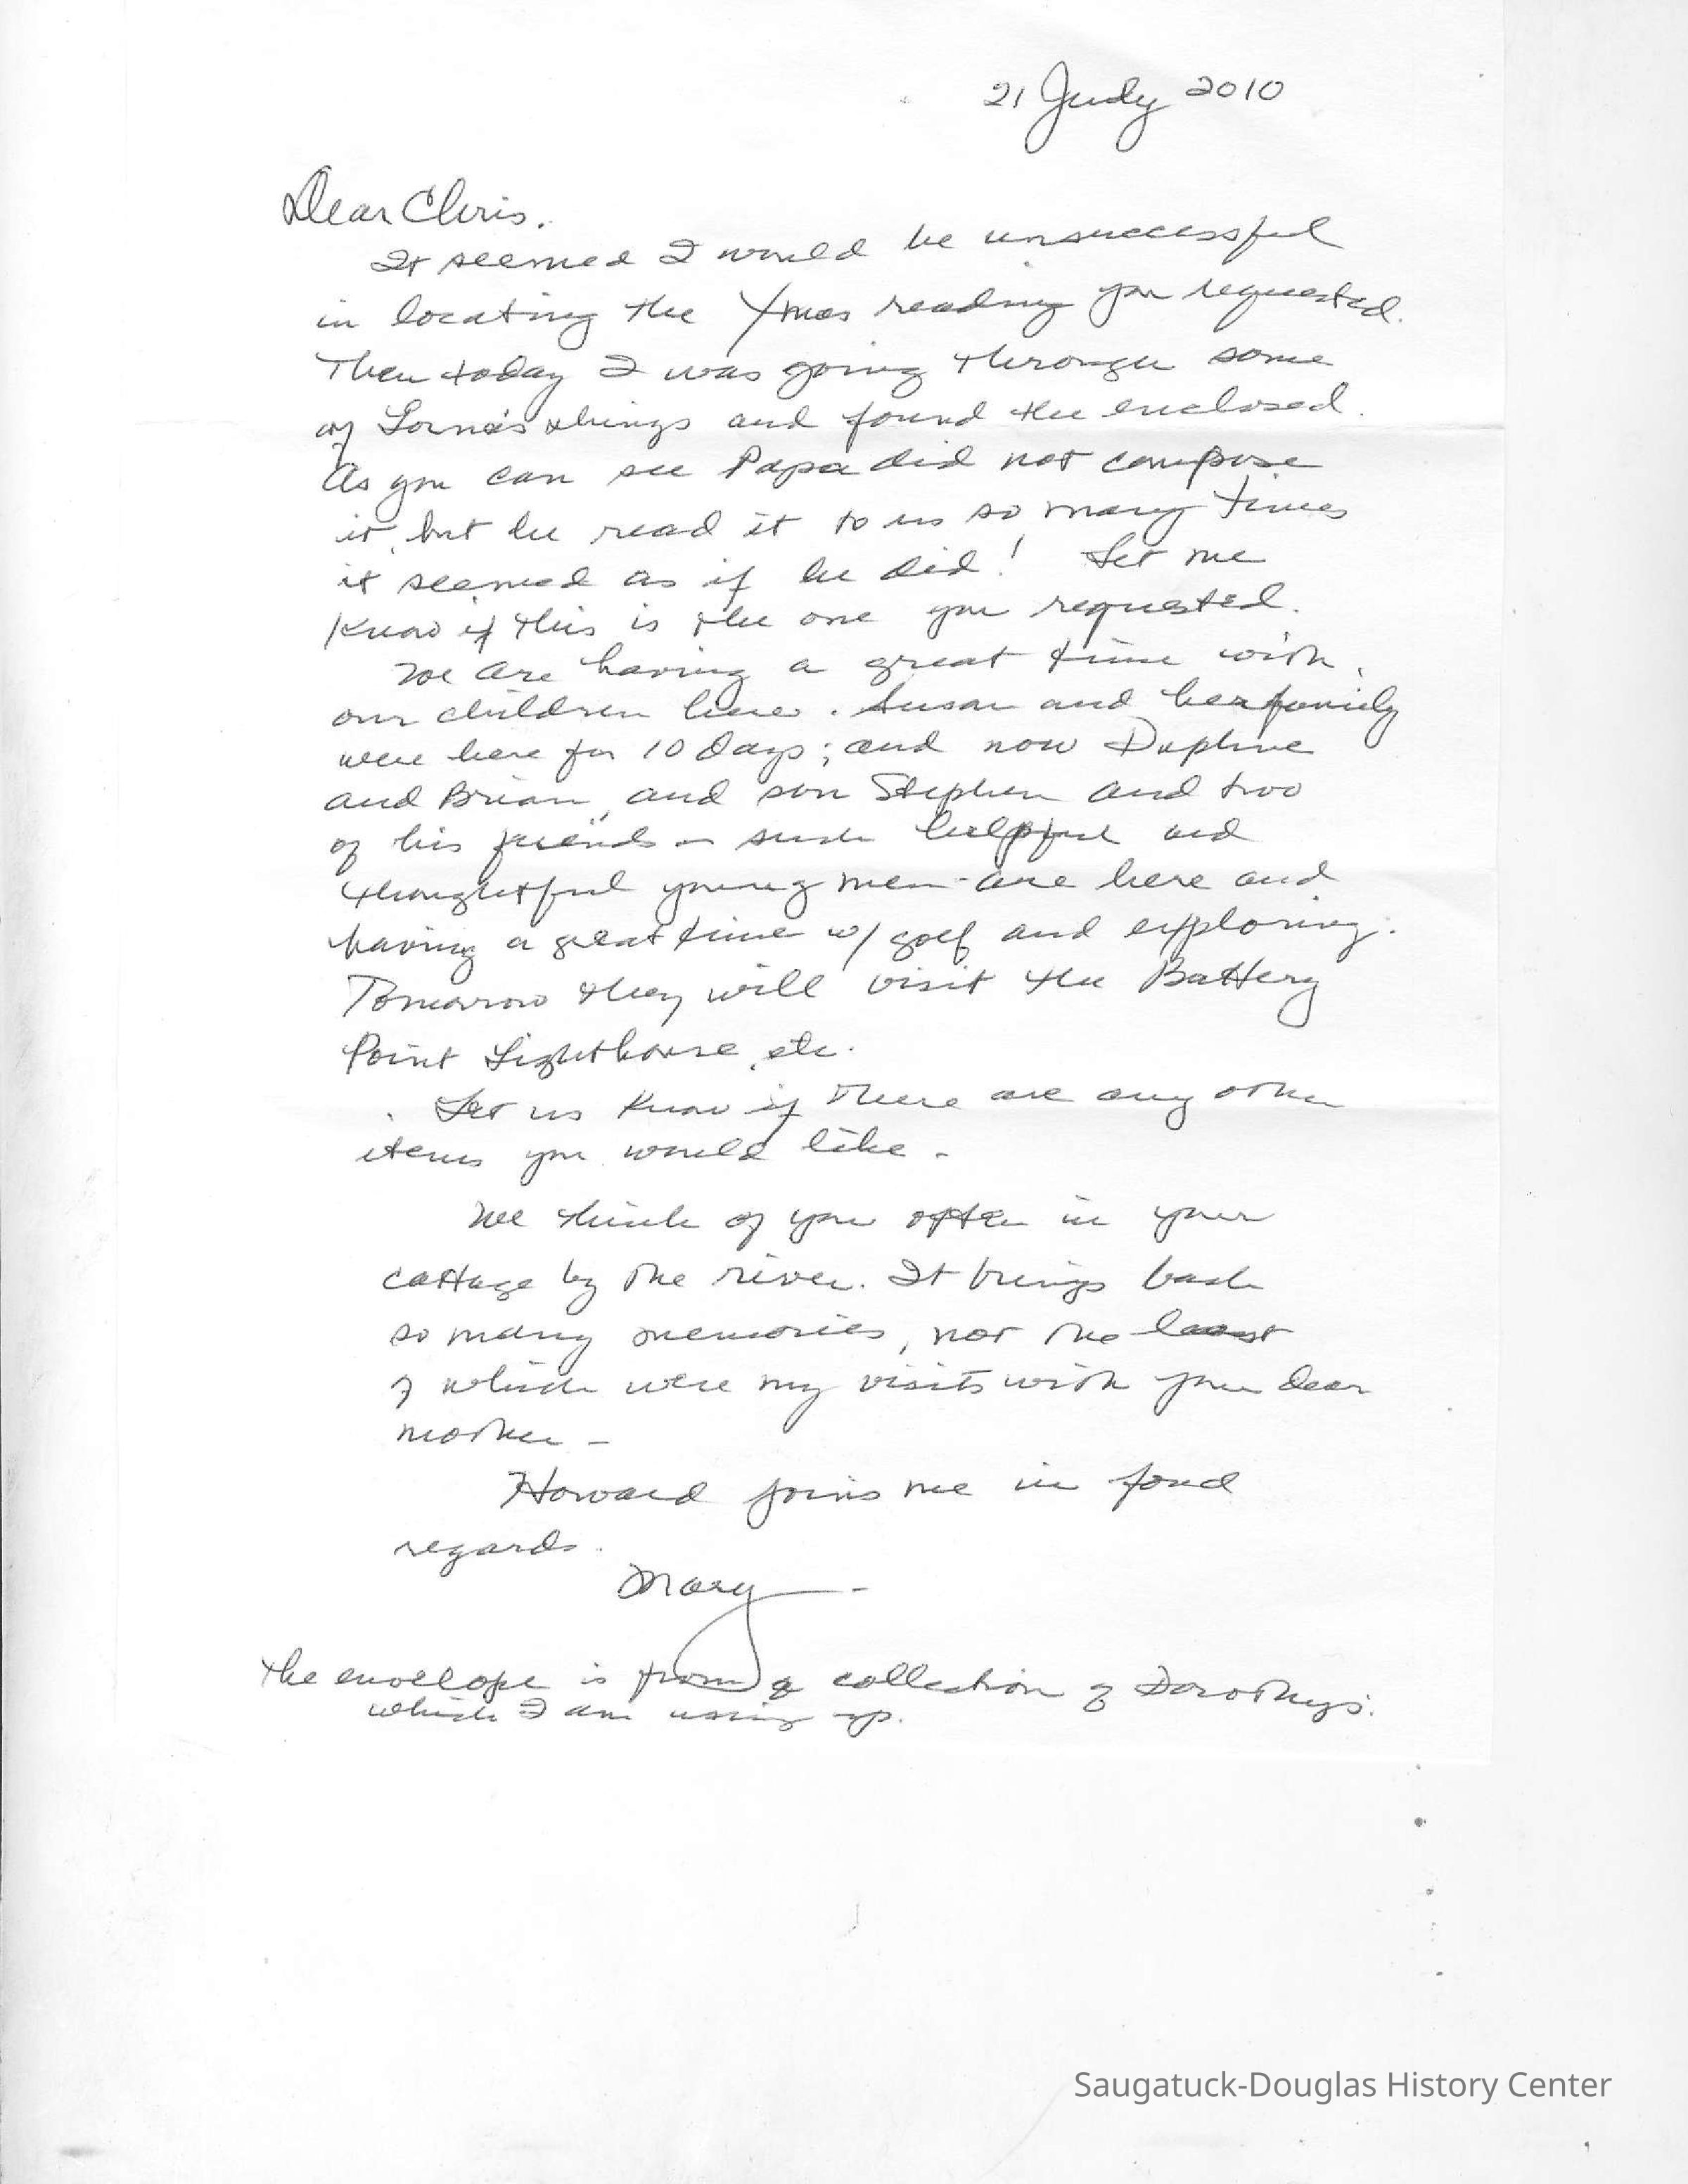 21 July 2010
Dear Chris.
It seemed I would be unsuccessful
in locating the Xmas reading you requested.
Then today I was going through some
of Lorna's things and found the enclosed.
As you can see Papa did not compose
it, but he read it to us so many times
it seemed as if he did! Let me
know if this is the one you requested.
We are having a great time with
our children here. Susan and her family
were here for 10 days; and now Daphne
and Brian, and son Stephen and two
of his friends - such helpful and
thoughtful young men - are here and
having a great time w/ golf and exploring.
Tomorrow they will visit the Battery
Point Lighthouse, etc.
Let us know if there are any other
items you would like -
We think of you often in your
cottage by the river. It brings back
so many memories, not the least
of which were my visits with your dear
mother -
Howard joins me in fond
regards.
Mary -
The envelope is from a collection of Dorothy's.
which I am using up.
Saugatuck-Douglas History Center